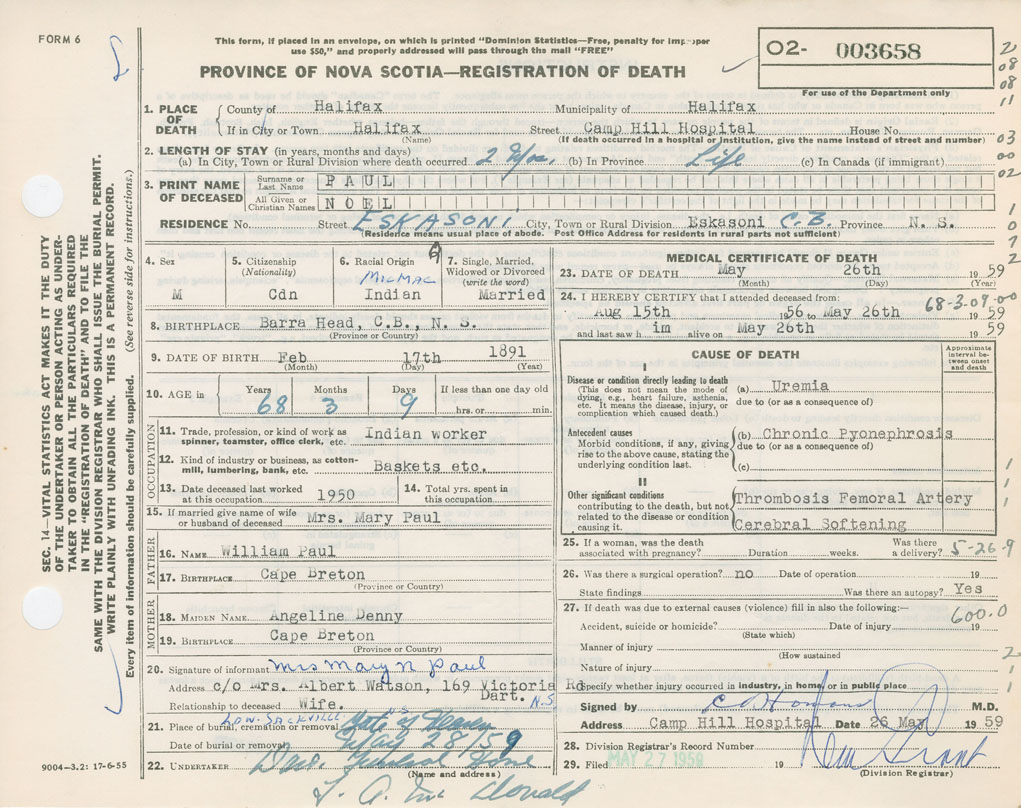 FORM 6
This form, if placed in an envelope, on which is printed "Dominion Statistics—Free, penalty for improper
use $50," and properly addressed will pass through the mail "FREE"
PROVINCE OF NOVA SCOTIA—REGISTRATION OF DEATH
02- 003658
For use of the Department only
2
08
08
11
03
00
02
1
0
7
2
SEC. 14—VITAL STATISTICS ACT MAKES IT THE DUTY
OF THE UNDERTAKER OR PERSON ACTING AS UNDER-
TAKER TO OBTAIN ALL THE PARTICULARS REQUIRED
IN THE "REGISTRATION OF DEATH" AND TO FILE THE
SAME WITH THE DIVISION REGISTRAR WHO SHALL ISSUE THE BURIAL PERMIT.
WRITE PLAINLY WITH UNFADING INK. THIS IS A PERMANENT RECORD.
Every item of information should be carefully supplied. (See reverse side for instructions.)
1. PLACE OF DEATH
County of Halifax Municipality of Halifax
If in City or Town Halifax Street Camp Hill Hospital House No.
(Name) (If death occurred in a hospital or institution, give the name instead of street and number)
2. LENGTH OF STAY (in years, months and days)
(a) In City, Town or Rural Division where death occurred 2 9/12 (b) In Province Life (c) In Canada (if immigrant)
3. PRINT NAME OF DECEASED
Surname or Last Name PAUL
All Given or Christian Names NOEL
RESIDENCE No. Street ESKASONI City, Town or Rural Division Eskasoni C.B. Province N. S.
(Residence means usual place of abode. Post Office Address for residents in rural parts not sufficient)
4. Sex
M
5. Citizenship (Nationality)
Cdn
6. Racial Origin
MicMac
Indian
7. Single, Married, Widowed or Divorced (write the word)
Married
8. BIRTHPLACE Barra Head, C.B., N. S.
(Province or Country)
9. DATE OF BIRTH Feb 17th 1891
(Month) (Day) (Year)
10. AGE in Years 68 Months 3 Days 9 If less than one day old hrs. or min.
OCCUPATION
11. Trade, profession, or kind of work as spinner, teamster, office clerk, etc. Indian worker
12. Kind of industry or business, as cotton-mill, lumbering, bank, etc. Baskets etc.
13. Date deceased last worked at this occupation 1950
14. Total yrs. spent in this occupation
15. If married give name of wife or husband of deceased Mrs. Mary Paul
FATHER
16. NAME William Paul
17. BIRTHPLACE Cape Breton
(Province or Country)
MOTHER
18. MAIDEN NAME Angeline Denny
19. BIRTHPLACE Cape Breton
(Province or Country)
20. Signature of informant Mrs Mary N Paul
Address c/o Mrs. Albert Watson, 169 Victoria Rd
Dart. N.S
Relationship to deceased Wife.
21. Place of burial, cremation or removal LOW. SACKVILLE N.S Gate of Heaven
Date of burial or removal May 28/59
22. UNDERTAKER
(Name and address)
9004—3.2: 17-6-55
MEDICAL CERTIFICATE OF DEATH
23. DATE OF DEATH May 26th 1959
(Month) (Day) (Year)
24. I HEREBY CERTIFY that I attended deceased from: 68-3-09-00
Aug 15th 1956 to May 26th 1959
and last saw him alive on May 26th 1959
CAUSE OF DEATH
Approximate interval between onset and death
I
Disease or condition directly leading to death
(This does not mean the mode of dying, e.g., heart failure, asthenia, etc. It means the disease, injury, or complication which caused death.)
(a) Uremia
due to (or as a consequence of)
Antecedent causes
Morbid conditions, if any, giving rise to the above cause, stating the underlying condition last.
(b) Chronic Pyonephrosis
due to (or as a consequence of)
(c)
II
Other significant conditions
contributing to the death, but not related to the disease or condition causing it.
Thrombosis Femoral Artery
Cerebral Softening
1
1
1
25. If a woman, was the death associated with pregnancy? Duration weeks. Was there a delivery?
5-26-9
26. Was there a surgical operation? no Date of operation 19
State findings Was there an autopsy? Yes
27. If death was due to external causes (violence) fill in also the following:—
600.0
Accident, suicide or homicide? Date of injury 19
(State which)
Manner of injury
(How sustained
Nature of injury
Specify whether injury occurred in industry, in home, or in public place
2
1
1
Signed by M.D.
Address Camp Hill Hospital Date 26 May 1959
28. Division Registrar's Record Number
29. Filed MAY 27 1959 19
(Division Registrar)